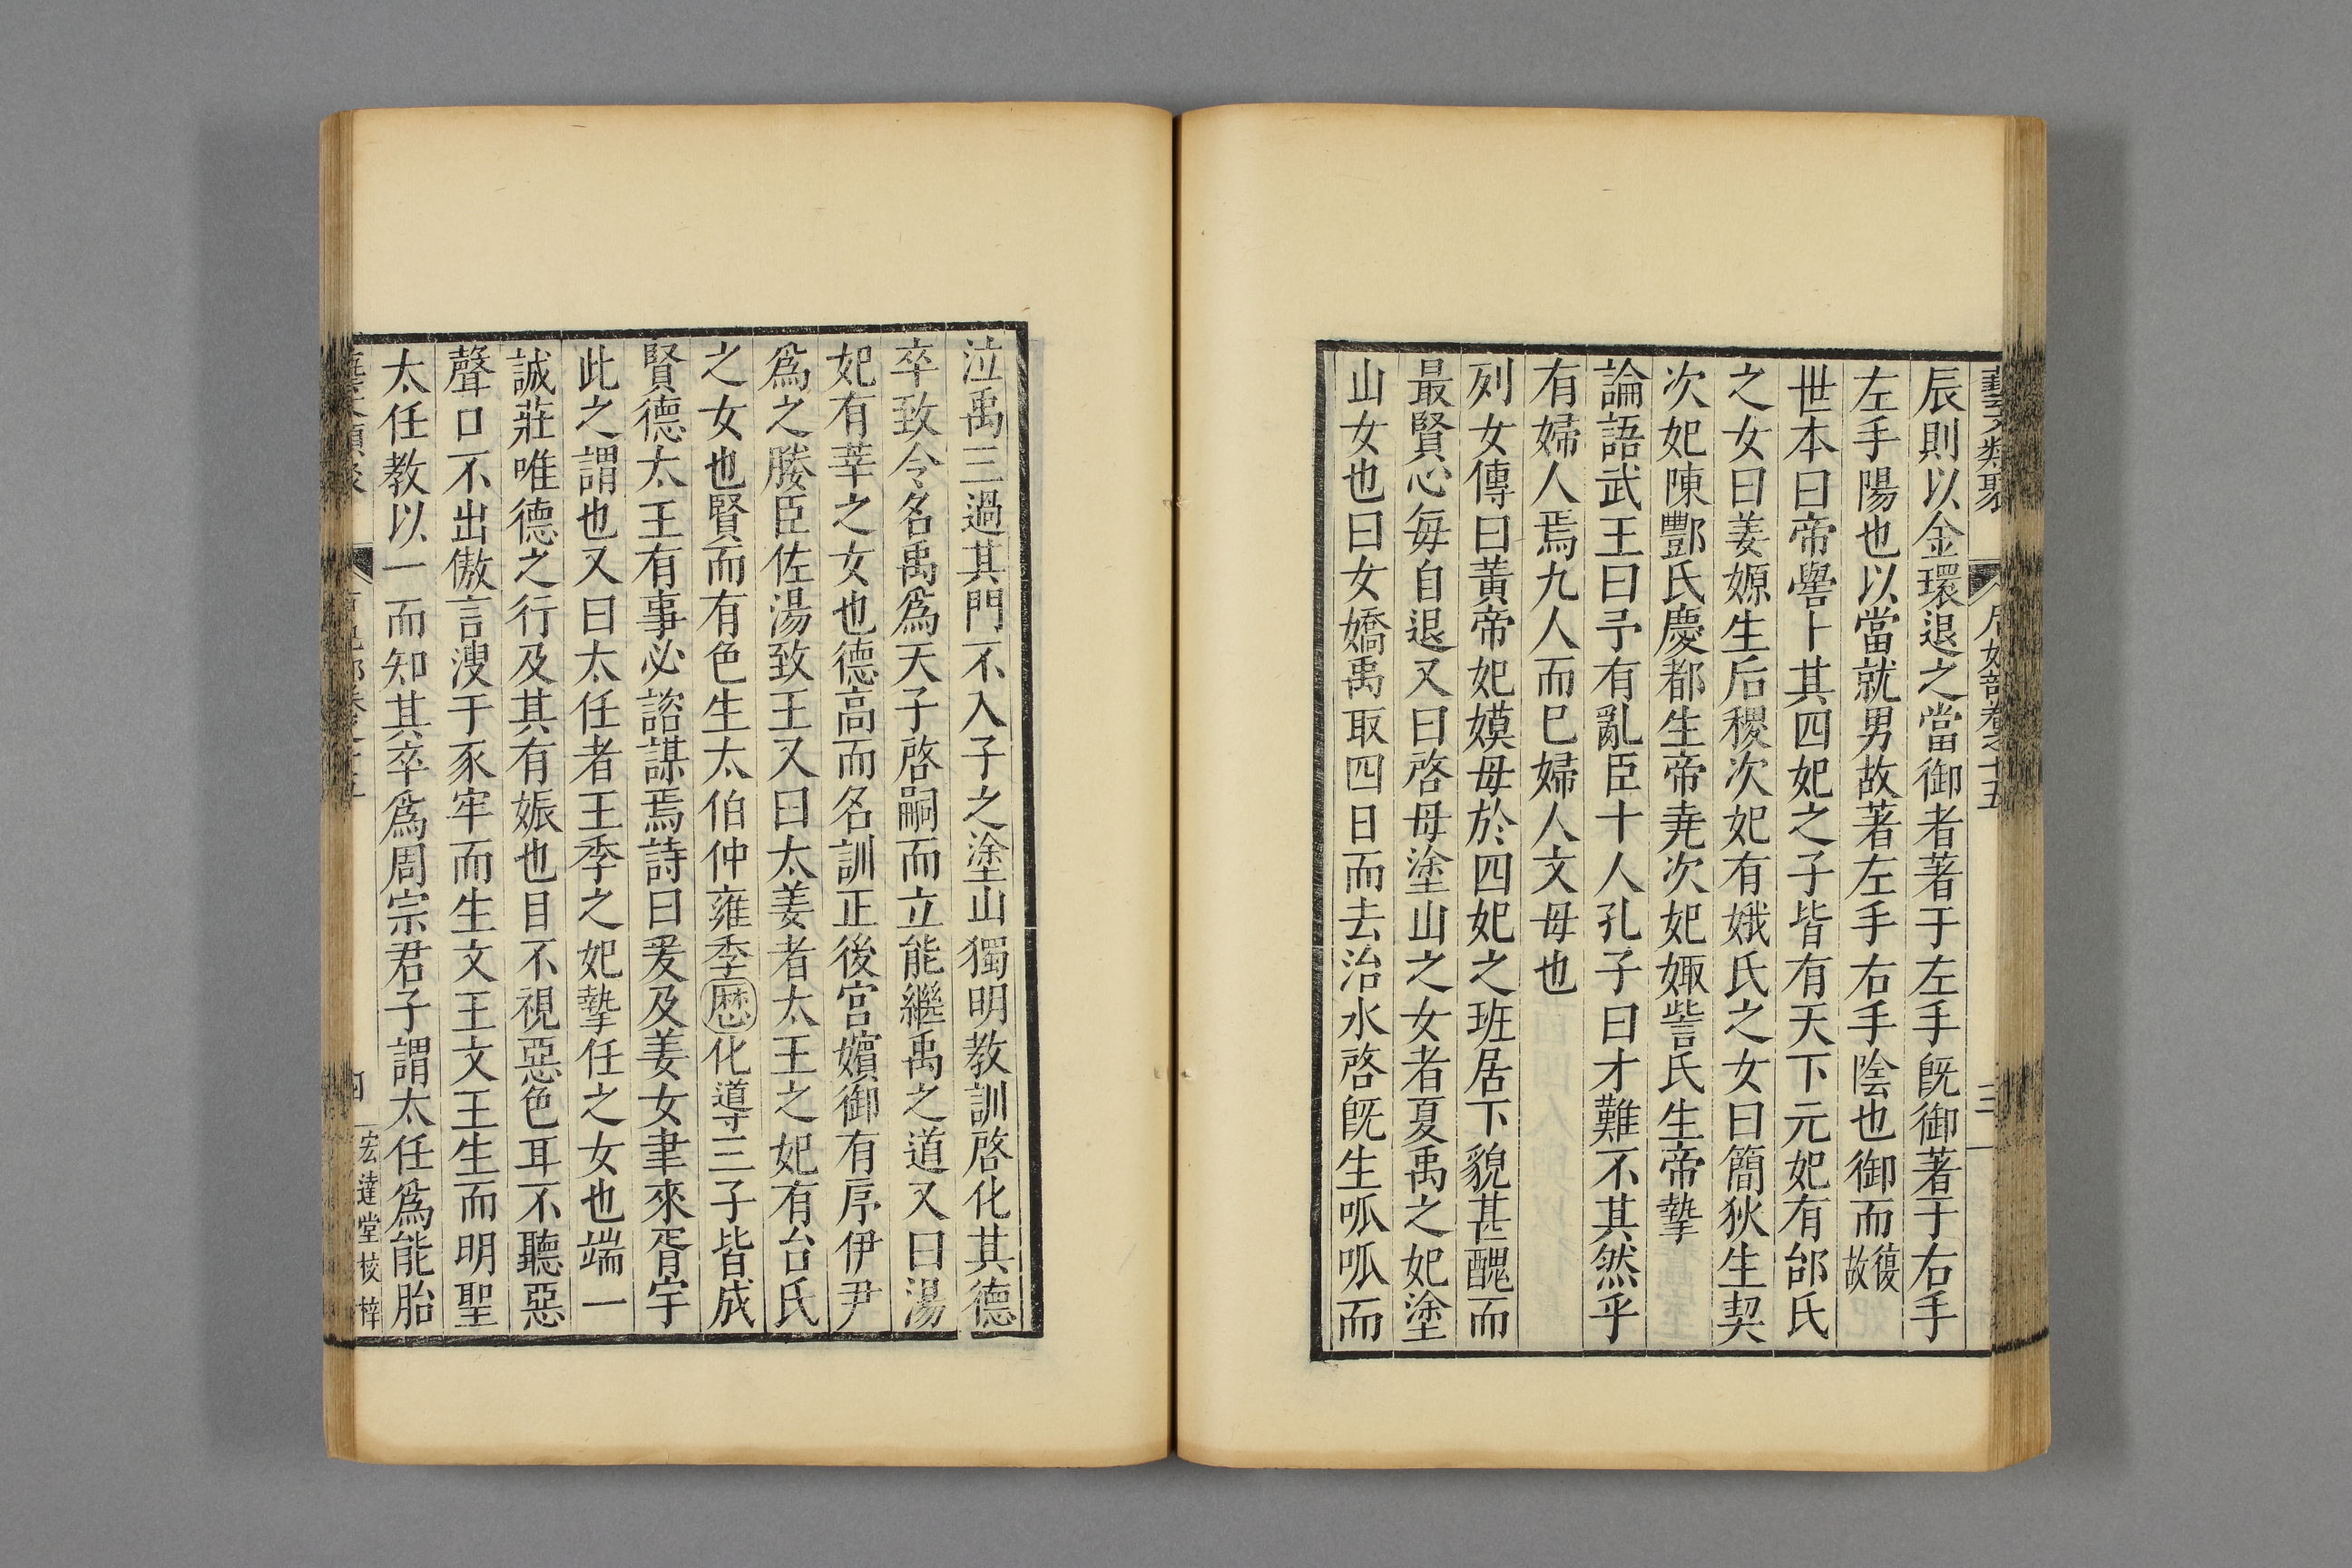 藝文類聚 后妃部卷之十五 三
辰則以金環退之當御者著于左手旣御著于右手
左手陽也以當就男故著左手右手陰也御而復故
世本曰帝嚳卜其四妃之子皆有天下元妃有邰氏
之女曰姜嫄生后稷次妃有娥氏之女曰簡狄生契
次妃陳酆氏慶都生帝堯次妃娵訾氏生帝摯
論語武王曰予有亂臣十人孔子曰才難不其然乎
有婦人焉九人而巳婦人文母也
列女傳曰黃帝妃嫫母於四妃之班居下貌甚醜而
最賢心每自退又曰啓母塗山之女者夏禹之妃塗
山女也曰女嬌禹取四日而去治水啓旣生呱呱而
泣禹三過其門不入子之塗山獨明教訓啓化其德
卒致令名禹爲天子啓嗣而立能繼禹之道又曰湯
妃有莘之女也德高而名訓正後宮嬪御有序伊尹
爲之媵臣佐湯致王又曰太姜者太王之妃有台氏
之女也賢而有色生太伯仲雍季歷化導三子皆成
賢德太王有事必諮謀焉詩曰爰及姜女聿來胥宇
此之謂也又曰太任者王季之妃摯任之女也端一
誠莊唯德之行及其有娠也目不視惡色耳不聽惡
聲口不出傲言溲于豕牢而生文王文王生而明聖
太任教以一而知其卒爲周宗君子謂太任爲能胎
四 宏達堂校梓